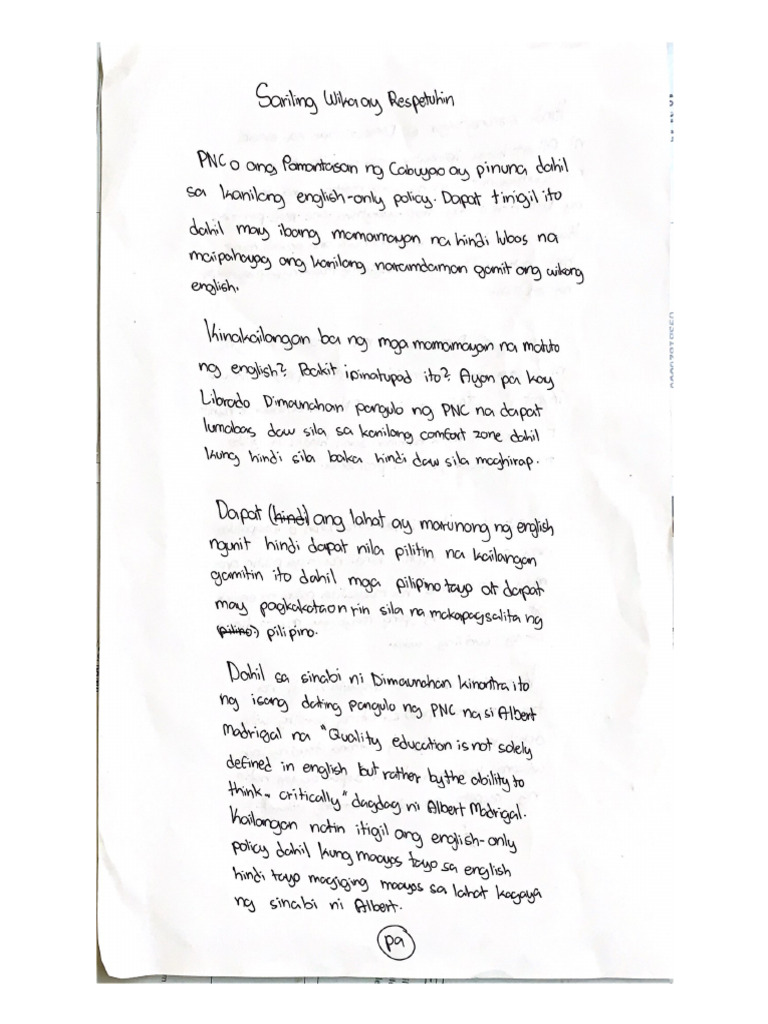 Sariling Wika ay Respetuhin
PNC o ang Pamantasan ng Cabuyao ay pinuna dahil
sa kanilang english-only policy. Dapat tinigil ito
dahil may ibang mamamayan na hindi lubos na
maipahayag ang kanilang naramdaman gamit ang wikang
english.
Kinakailangan ba ng mga mamamayan na matuto
ng english? Bakit ipinatupad ito? Ayon pa kay
Librado Dimaunahan pangulo ng PNC na dapat
lumabas daw sila sa kanilang comfort zone dahil
kung hindi sila baka hindi daw sila maghirap.
Dapat (hindi) ang lahat ay marunong ng english
ngunit hindi dapat nila pilitin na kailangan
gamitin ito dahil mga pilipino tayo at dapat
may pagkakataon rin sila na makapagsalita ng
(pilino.) pilipino.
Dahil sa sinabi ni Dimaunahan kinontra ito
ng isang dating pangulo ng PNC na si Albert
Madrigal na "Quality education is not solely
defined in english but rather by the ability to
think critically" dagdag ni Albert Madrigal.
Kailangan natin itigil ang english-only
policy dahil kung maayos tayo sa english
hindi tayo magiging maayos sa lahat kagaya
ng sinabi ni Albert.
pa